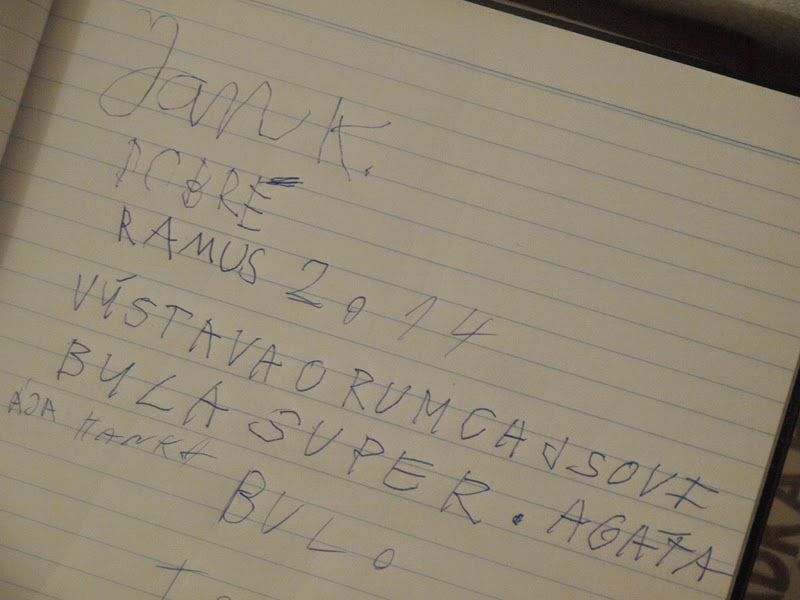 Jan K.
DOBRÉ
RAMUS 2014
VÝSTAVA O RUMCAJSOVI
BYLA SUPER. AGÁTA
ÁJA HANKA
BULO